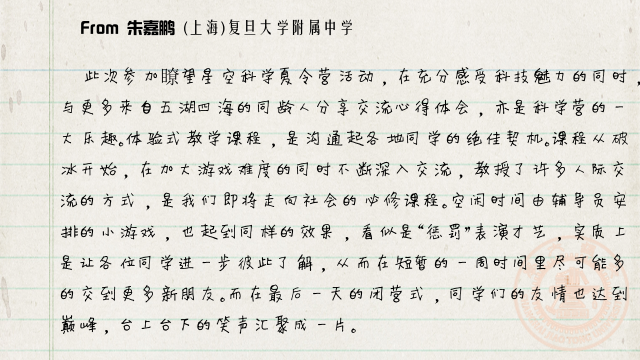 From 朱嘉鹏 (上海)复旦大学附属中学
此次参加瞭望星空科学夏令营活动，在充分感受科技魅力的同时，
与更多来自五湖四海的同龄人分享交流心得体会，亦是科学营的一
大乐趣。体验式教学课程，是沟通起各地同学的绝佳契机。课程从破
冰开始，在加大游戏难度的同时不断深入交流，教授了许多人际交
流的方式，是我们即将走向社会的必修课程。空闲时间由辅导员安
排的小游戏，也起到同样的效果，看似是“惩罚”表演才艺，实质上
是让各位同学进一步彼此了解，从而在短暂的一周时间里尽可能多
的交到更多新朋友。而在最后一天的闭营式，同学们的友情也达到
巅峰，台上台下的笑声汇聚成一片。